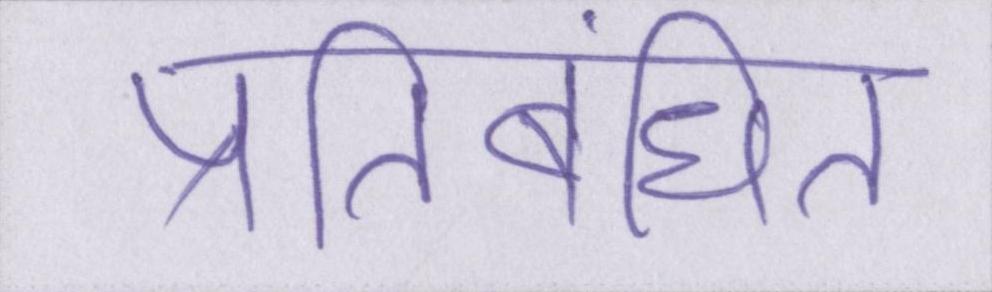 प्रतिबंधित